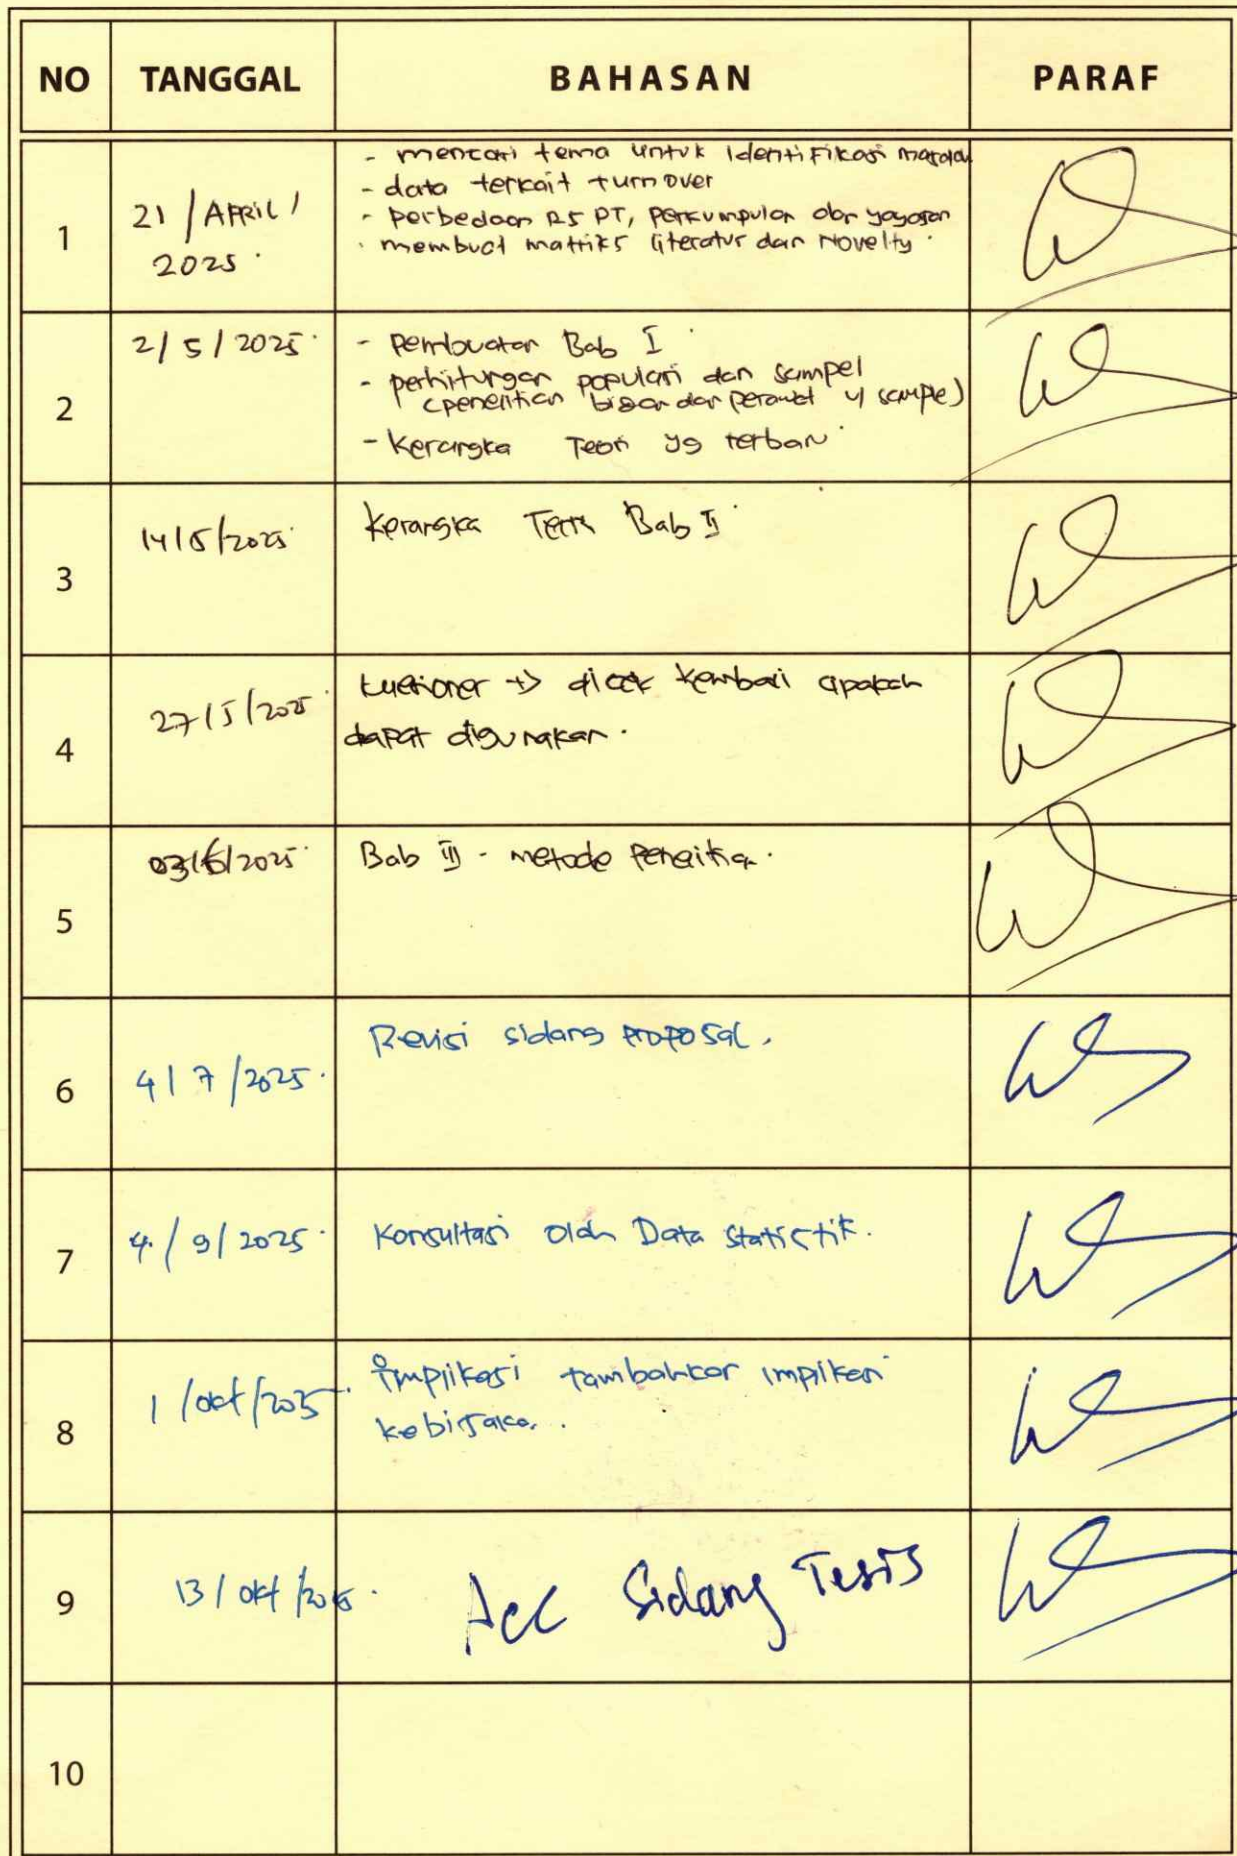 NO TANGGAL BAHASAN PARAF
1 21 / APRIL / 2025
- mencari tema untuk identifikasi masalah
- data terkait turnover
- perbedaan RS PT, perkumpulan dan yayasan
- membuat matriks literatur dan Novelty
2 2/5/2025
- pembuatan Bab I
- perhitungan populasi dan sampel
(penelitian bidan dan perawat u/ sample)
- Kerangka Teori yg terbaru
3 14/5/2025 Kerangka Teori Bab II
4 27/5/2025 kuesioner → dicek kembali apakah
dapat digunakan.
5 03/6/2025 Bab III - metode Penelitian.
6 4/7/2025 Revisi sidang proposal.
7 4/9/2025 Konsultasi olah Data Statistik.
8 1/okt/2025 Implikasi tambahkan implikasi
kebijakan.
9 13/okt/2025 Acc Sidang Tesis
10